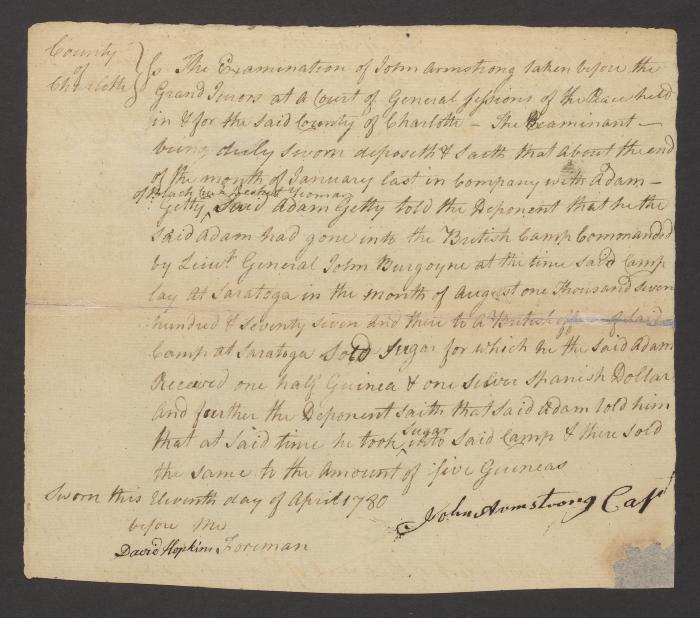 County
of
Charlotte } Ss The Examination of John Armstrong taken before the
Grand Jurors at a Court of General sessions of the Peace held
in & for the said County of Charlotte — The Examinant —
being duly sworn deposeth & saith that about the end
of the month of January last in Company with Adam —
of Black Creek Yeoman
Getty, Said Adam Getty told the Deponent that he the
said Adam had gone into the British Camp Commanded
by Lieut. General John Burgoyne at the time said Camp
lay at Saratoga in the month of August one Thousand seven
hundred & seventy seven and there to a British of said
Camp at Saratoga sold sugar for which he the said Adam
Received one half Guinea & one silver Spanish Dollar
and further the Deponent saith that said Adam told him
sugar
that at said time he took ^ into said Camp & there sold
the same to the amount of five Guineas
Sworn this Eleventh day of April 1780
before me
John Armstrong Capt
David Hopkins Foreman